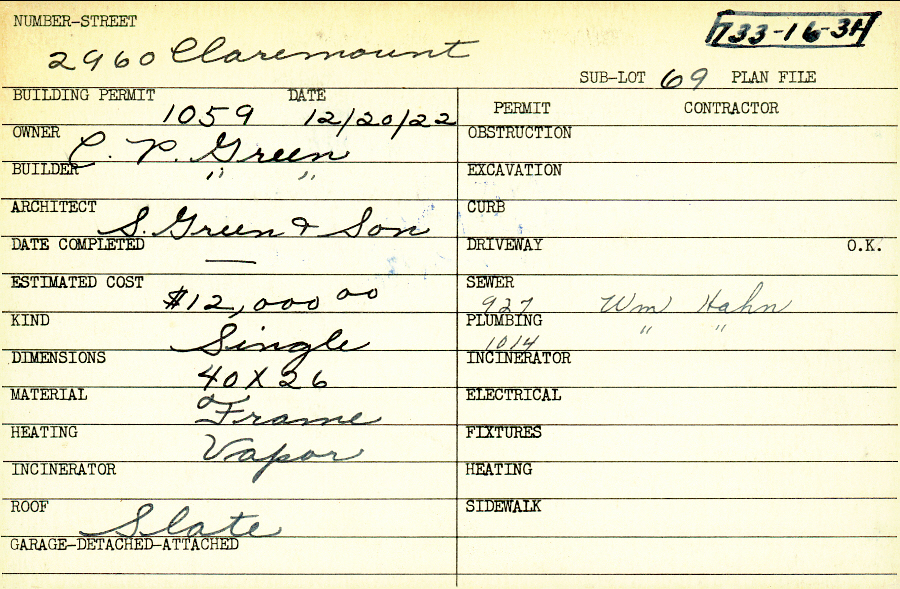 NUMBER-STREET
2960 Claremount
733-16-34
SUB-LOT 69 PLAN FILE
BUILDING PERMIT 1059 DATE 12/20/22
PERMIT CONTRACTOR
OWNER C. P. Green
OBSTRUCTION
BUILDER " "
EXCAVATION
ARCHITECT S. Green & Son
CURB
DATE COMPLETED —
DRIVEWAY O.K.
ESTIMATED COST $12,000 00
SEWER 927 Wm Hahn
KIND Single
PLUMBING 1014 " "
DIMENSIONS 40 X 26
INCINERATOR
MATERIAL Frame
ELECTRICAL
HEATING Vapor
FIXTURES
INCINERATOR
HEATING
ROOF Slate
SIDEWALK
GARAGE-DETACHED-ATTACHED